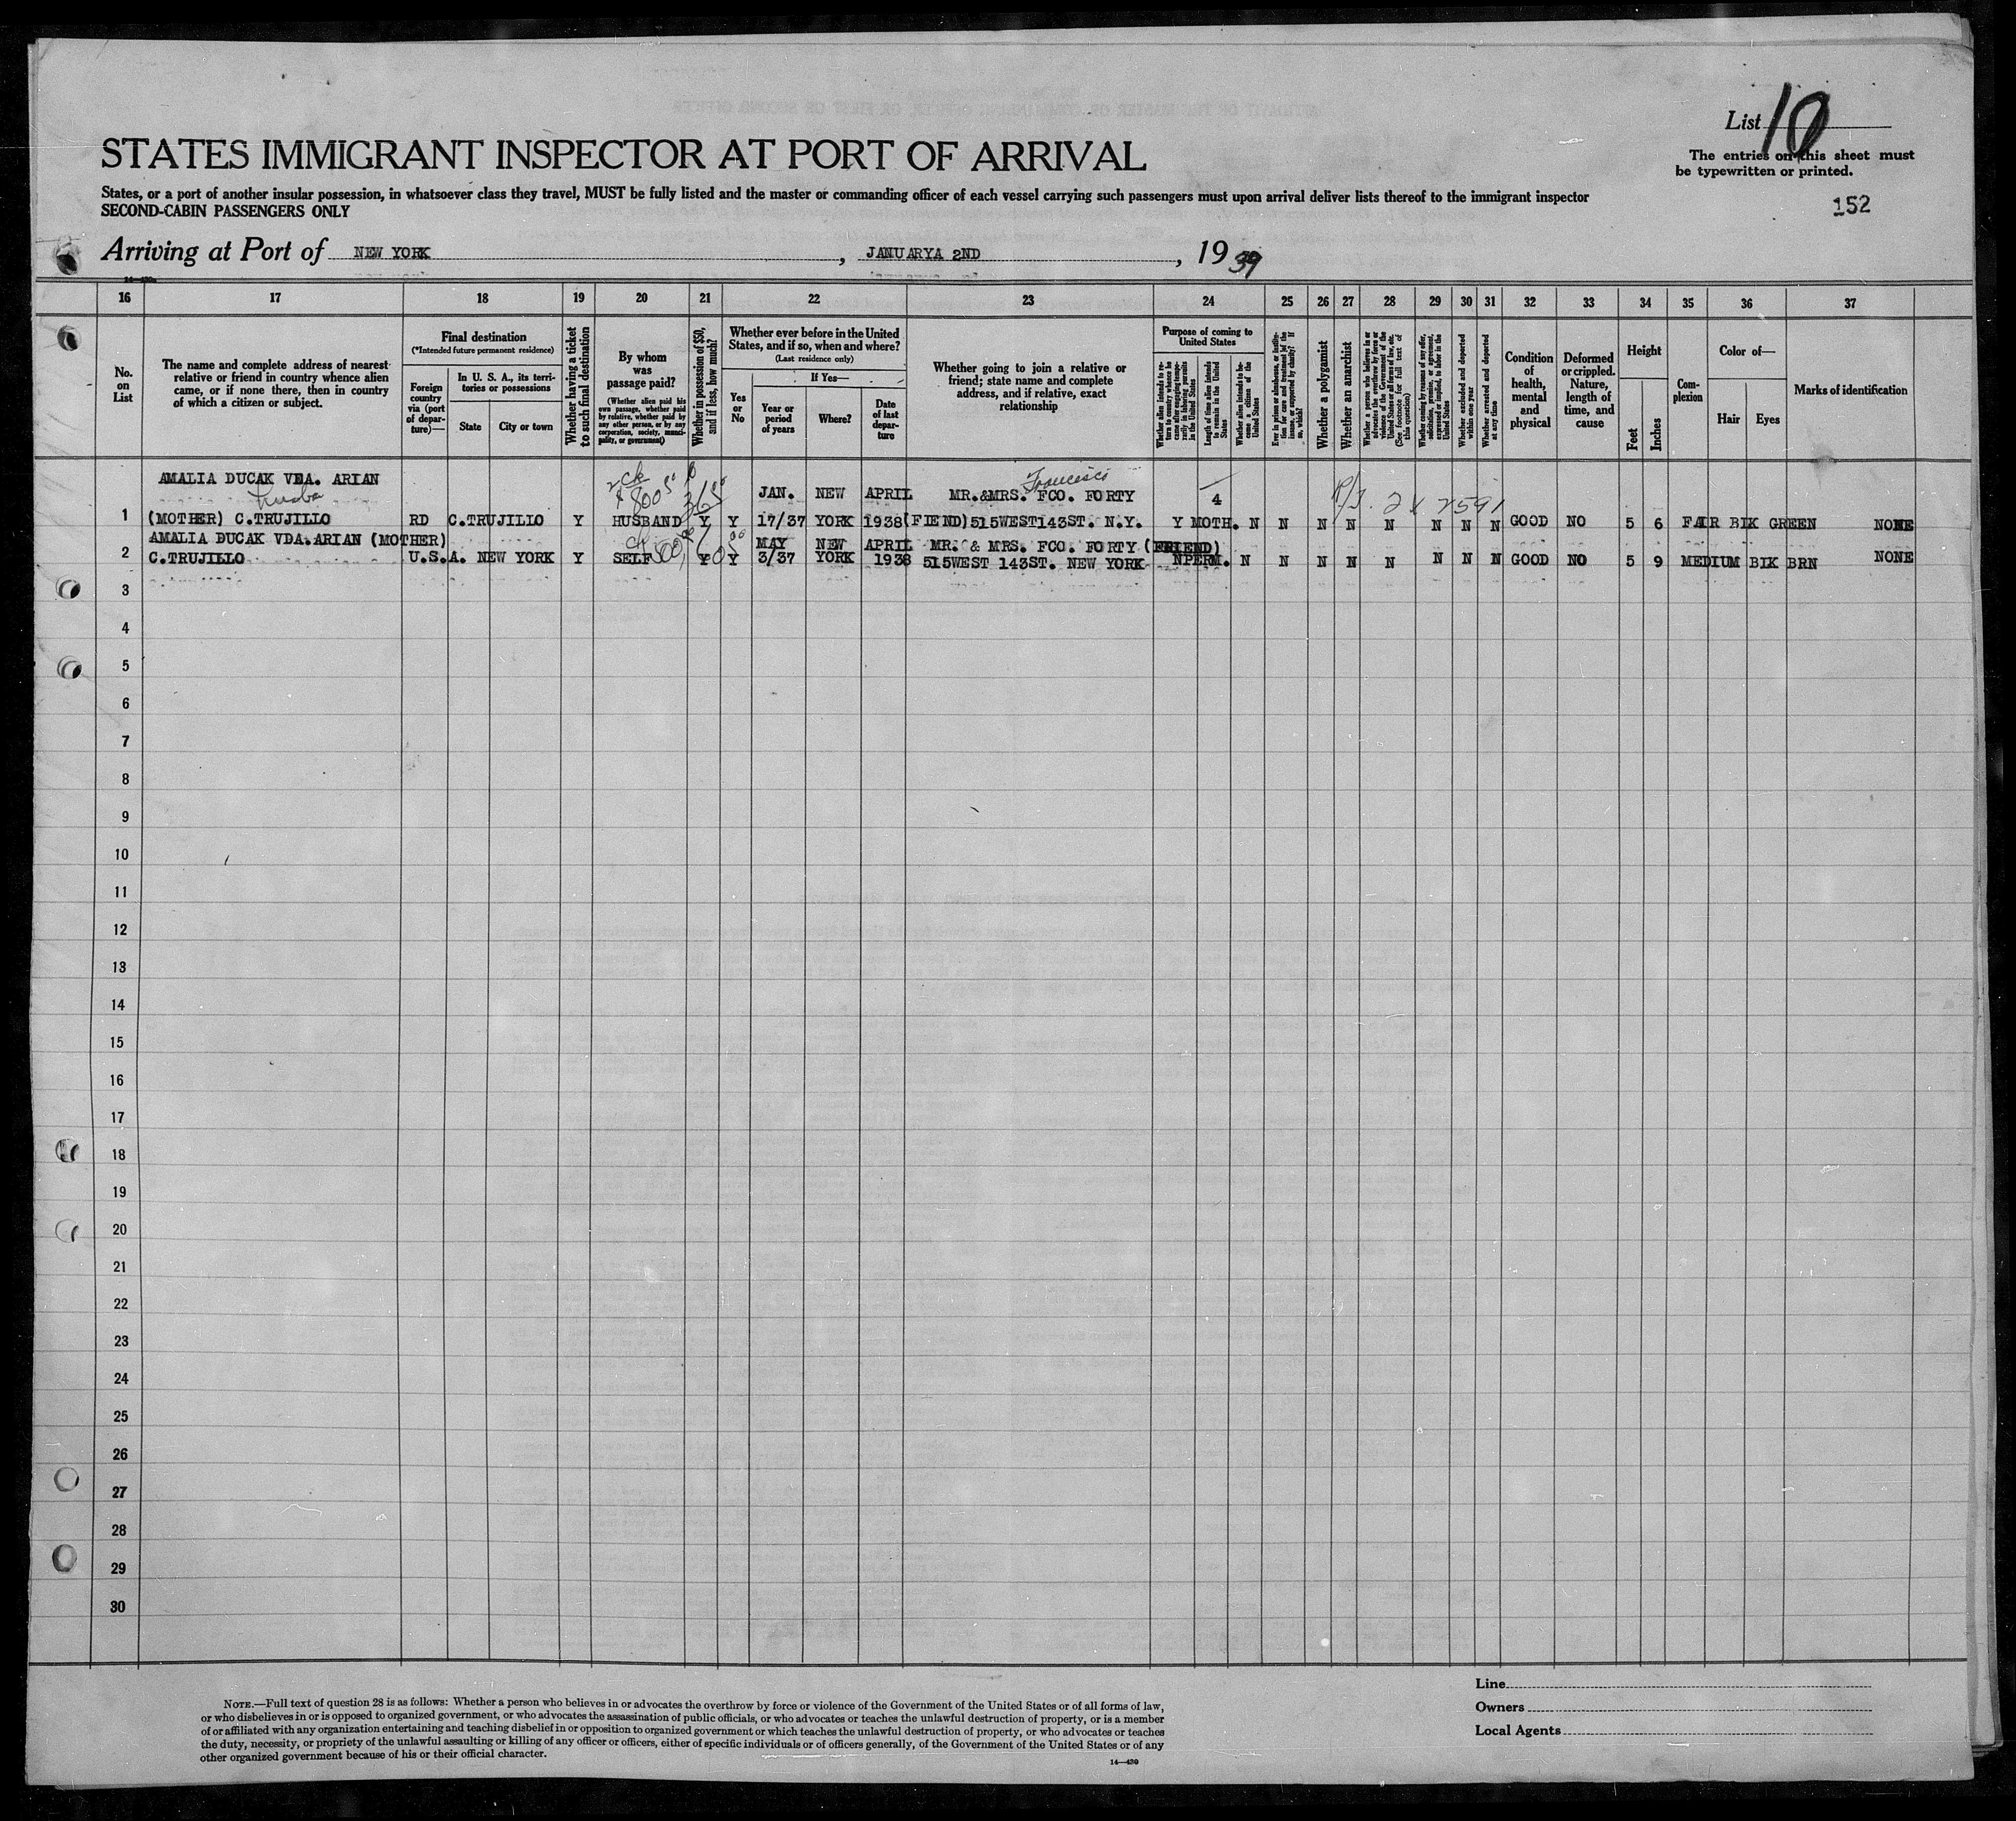 List 10
The entries on this sheet must
be typewritten or printed.
152
STATES IMMIGRANT INSPECTOR AT PORT OF ARRIVAL
States, or a port of another insular possession, in whatsoever class they travel, MUST be fully listed and the master or commanding officer of each vessel carrying such passengers must upon arrival deliver lists thereof to the immigrant inspector
SECOND-CABIN PASSENGERS ONLY
Arriving at Port of NEW YORK, JANUARYA 2ND, 1939
16 17 18 19 20 21 22 23 24 25 26 27 28 29 30 31 32 33 34 35 36 37
No. on List
The name and complete address of nearest relative or friend in country whence alien came, or if none there, then in country of which a citizen or subject.
Final destination
(*Intended future permanent residence)
Foreign country via (port of departure)—
In U. S. A., its territories or possessions
State
City or town
Whether having a ticket to such final destination
By whom was passage paid?
(Whether alien paid his own passage, whether paid by relative, whether paid by any other person, or by any corporation, society, municipality, or government)
Whether in possession of $50, and if less, how much?
Whether ever before in the United States, and if so, when and where?
(Last residence only)
Yes or No
If Yes—
Year or period of years
Where?
Date of last departure
Whether going to join a relative or friend; state name and complete address, and if relative, exact relationship
Purpose of coming to United States
Whether alien intends to return to country whence he came after engaging temporarily in laboring pursuits in the United States
Length of time alien intends to remain in the United States
Whether alien intends to become a citizen of the United States
Ever in prison or almshouse, or institution for care and treatment of the insane, or supported by charity? If so, which?
Whether a polygamist
Whether an anarchist
Whether a person who believes in or advocates the overthrow by force or violence of the Government of the United States or all forms of law, etc. (See footnote for full text of this question)
Whether coming by reasons of any offer, solicitation, promise, or agreement, expressed or implied, to labor in the United States
Whether excluded and deported within one year
Whether arrested and deported at any time
Condition of health, mental and physical
Deformed or crippled. Nature, length of time, and cause
Height
Feet
Inches
Complexion
Color of—
Hair
Eyes
Marks of identification
AMALIA DUCAK VDA. ARIAN JAN. NEW APRIL MR.&MRS. FCO. FORTY 4
Francisco
1 (MOTHER) C.TRUJILLO RD C.TRUJILIO Y HUSBAND Y Y 17/37 YORK 1938 (FIEND) 515WEST143ST. N.Y. Y MOTH. N N N N N N N N GOOD NO 5 6 FAIR BIK GREEN NONE
AMALIA DUCAK VDA.ARIAN (MOTHER) MAY NEW APRIL MR. & MRS. FCO. FORTY (FRIEND)
2 C.TRUJILLO U.S.A. NEW YORK Y SELF Y Y 3/37 YORK 1938 515WEST 143ST. NEW YORK NPERM. N N N N N N N N GOOD NO 5 9 MEDIUM BIK BRN NONE
3
4
5
6
7
8
9
10
11
12
13
14
15
16
17
18
19
20
21
22
23
24
25
26
27
28
29
30
NOTE.—Full text of question 28 is as follows: Whether a person who believes in or advocates the overthrow by force or violence of the Government of the United States or of all forms of law,
or who disbelieves in or is opposed to organized government, or who advocates the assassination of public officials, or who advocates or teaches the unlawful destruction of property, or is a member
of or affiliated with any organization entertaining and teaching disbelief in or opposition to organized government or which teaches the unlawful destruction of property, or who advocates or teaches
the duty, necessity, or propriety of the unlawful assaulting or killing of any officer or officers, either of specific individuals or of officers generally, of the Government of the United States or of any
other organized government because of his or their official character.
14—430
Line
Owners
Local Agents